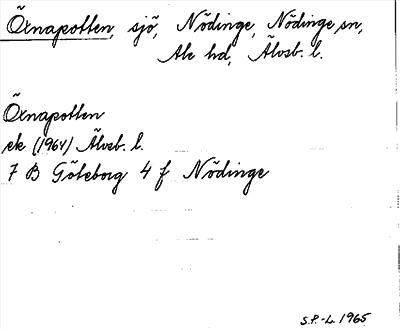 Örnapotten, sjö, Nödinge, Nödinge sn,
Ale hd, Älvsb. l.
Örnapotten
ek (1964) Älvsb. l.
7 B Göteborg 4 f Nödinge
S.P.-L. 1965